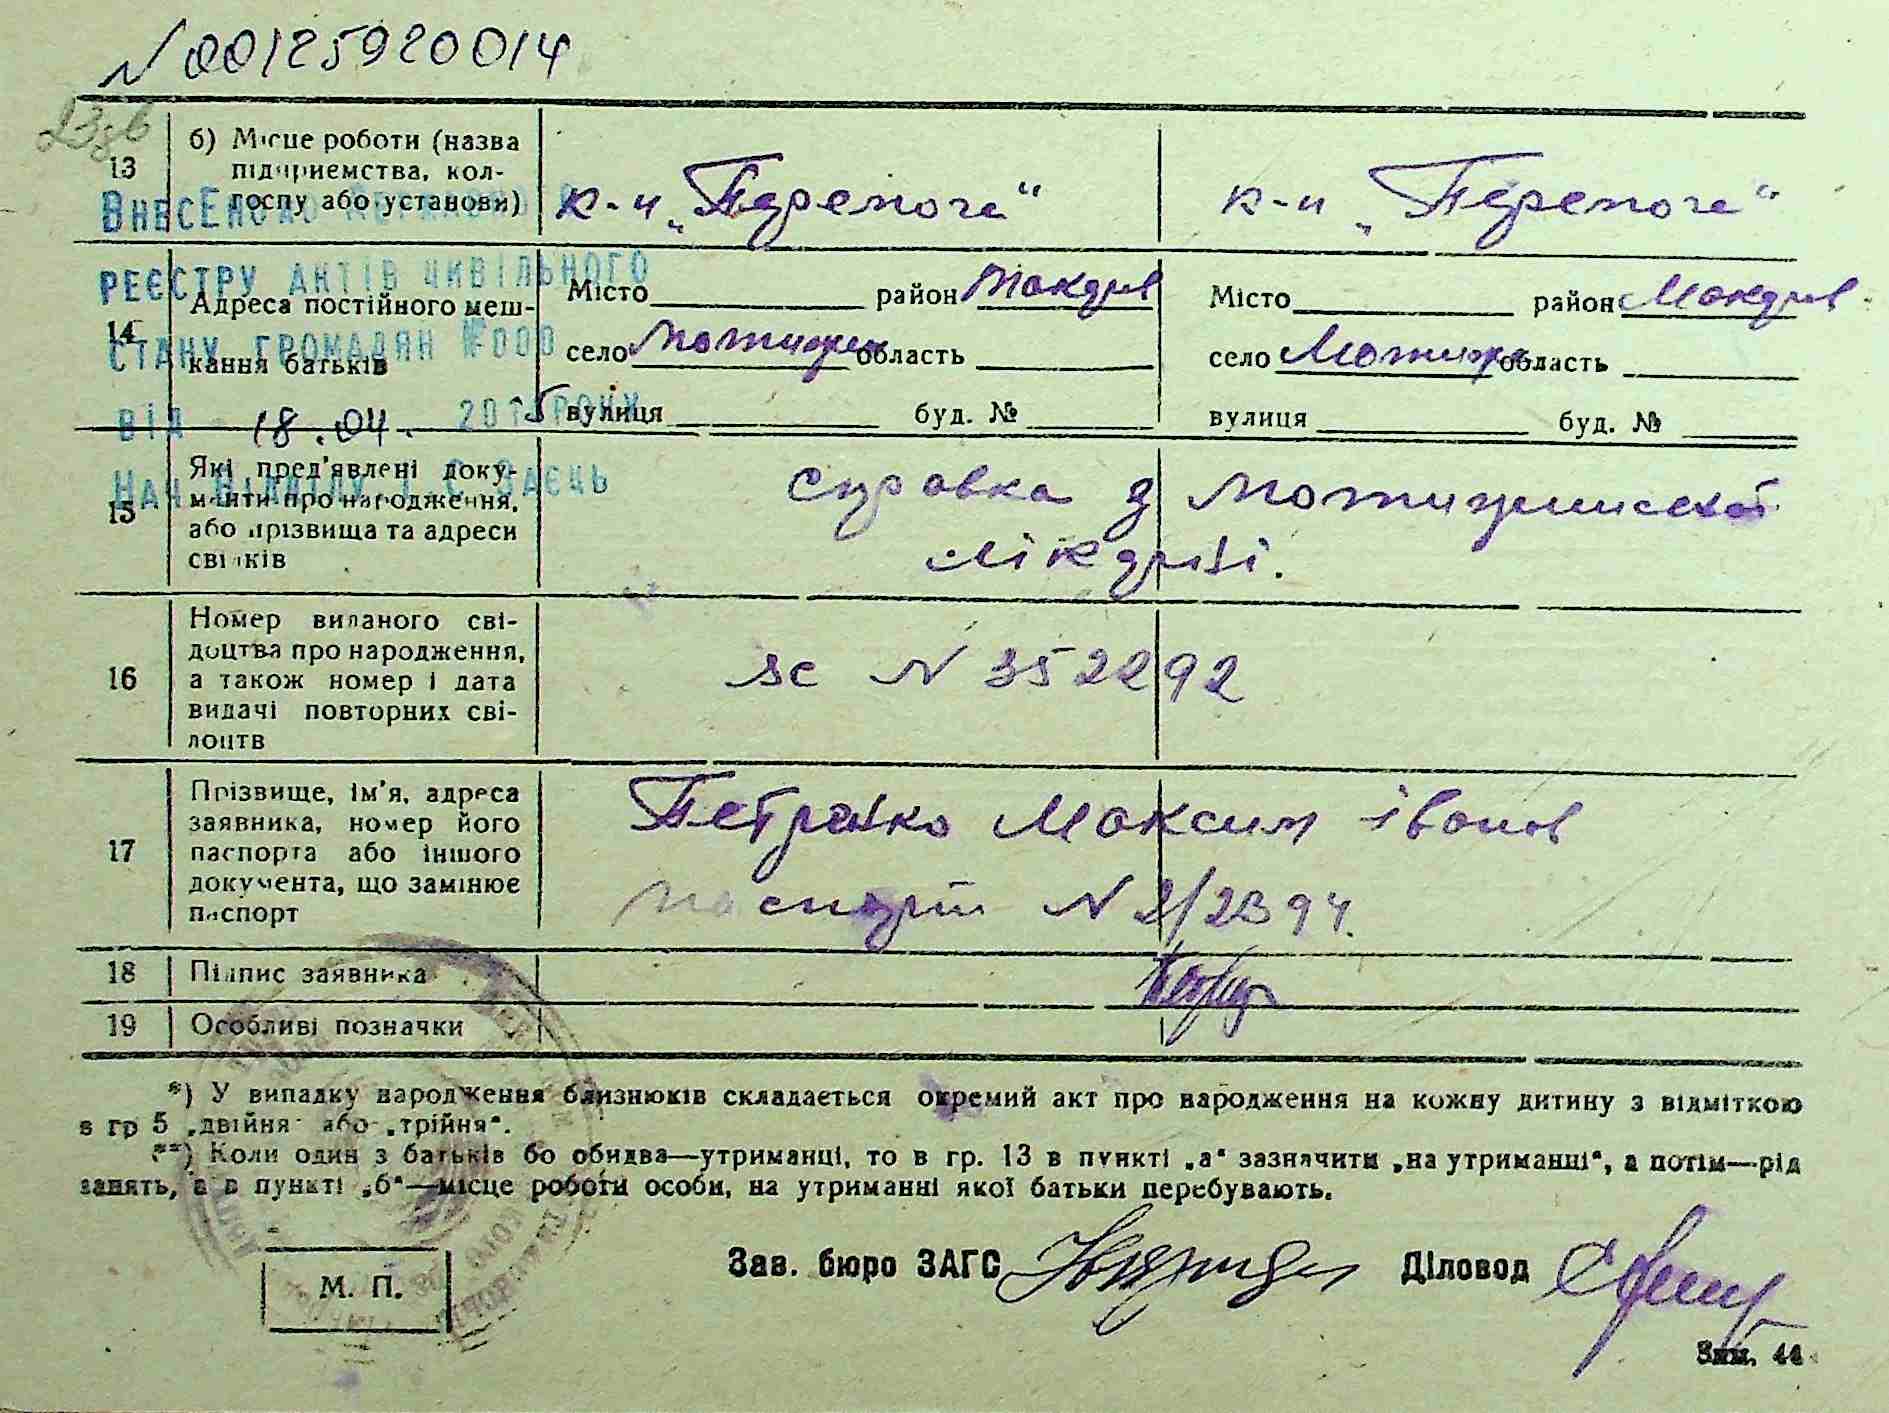 N 00125920014
13
б) Місце роботи (назва підприємства, колгоспу або установи)
к-п „Перемога“
к-п „Перемога“
Внесено до Державного
реєстру актів цивільного
стану громадян №000
від 18.04. 2015 року
Нач. відділу Заєць
14
Адреса постійного мешкання батьків
Місто район Макарів
село Мотижин область
вулиця буд. №
Місто район Макарів
село Мотижин область
вулиця буд. №
15
Які пред'явлені документи про народження, або прізвища та адреси свідків
справка з Мотижинської
лікарні.
16
Номер виданого свідоцтва про народження, а також номер і дата видачі повторних свідоцтв
N 352292
17
Прізвище, ім'я, адреса заявника, номер його паспорта або іншого документа, що замінює паспорт
Петренко Максим Іванов
паспорт N
18
Підпис заявника
19
Особливі позначки
*) У випадку народження близнюків складається окремий акт про народження на кожну дитину з відміткою
в гр 5 „двійня“ або „трійня“.
**) Коли один з батьків бо обидва—утриманці, то в гр. 13 в пункті „а“ зазначити „на утриманні“, а потім—рід
занять, а в пункті „б“—місце роботи особи, на утриманні якої батьки перебувають.
Зав. бюро ЗАГС
Діловод
М. П.
Зам. 44